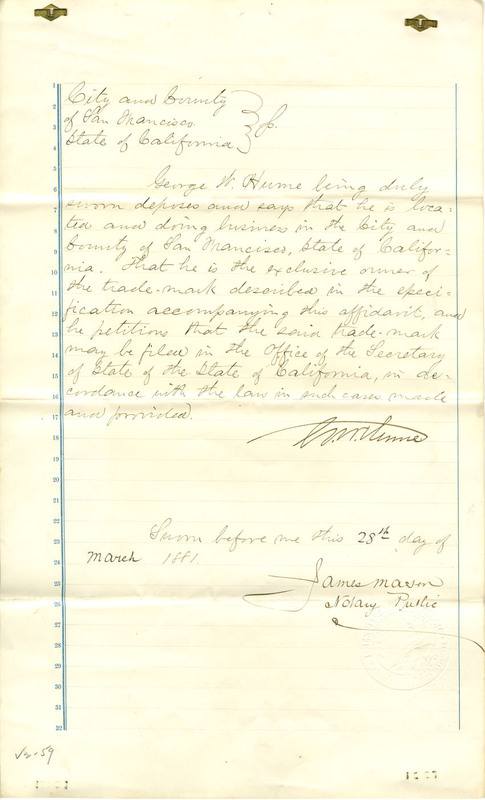 City and County
of San Francisco
State of California
George W. Hume being duly
sworn deposes and says that he is loca-
ted and doing business in the City and
County of San Francisco, State of Califor-
nia. That he is the exclusive owner of
the trade-mark described in the speci-
fication accompanying this affidavit, and
he petitions that the said trade-mark
may be filed in the Office of the Secretary
of State of the State of California, in ac-
cordance with the law in such cases made
and provided.
G. W. Hume
Sworn before me this 28th day of
March 1881.
James Mason
Notary Public
1
2
3
4
5
6
7
8
9
10
11
12
13
14
15
16
17
18
19
20
21
22
23
24
25
26
27
28
29
30
31
32